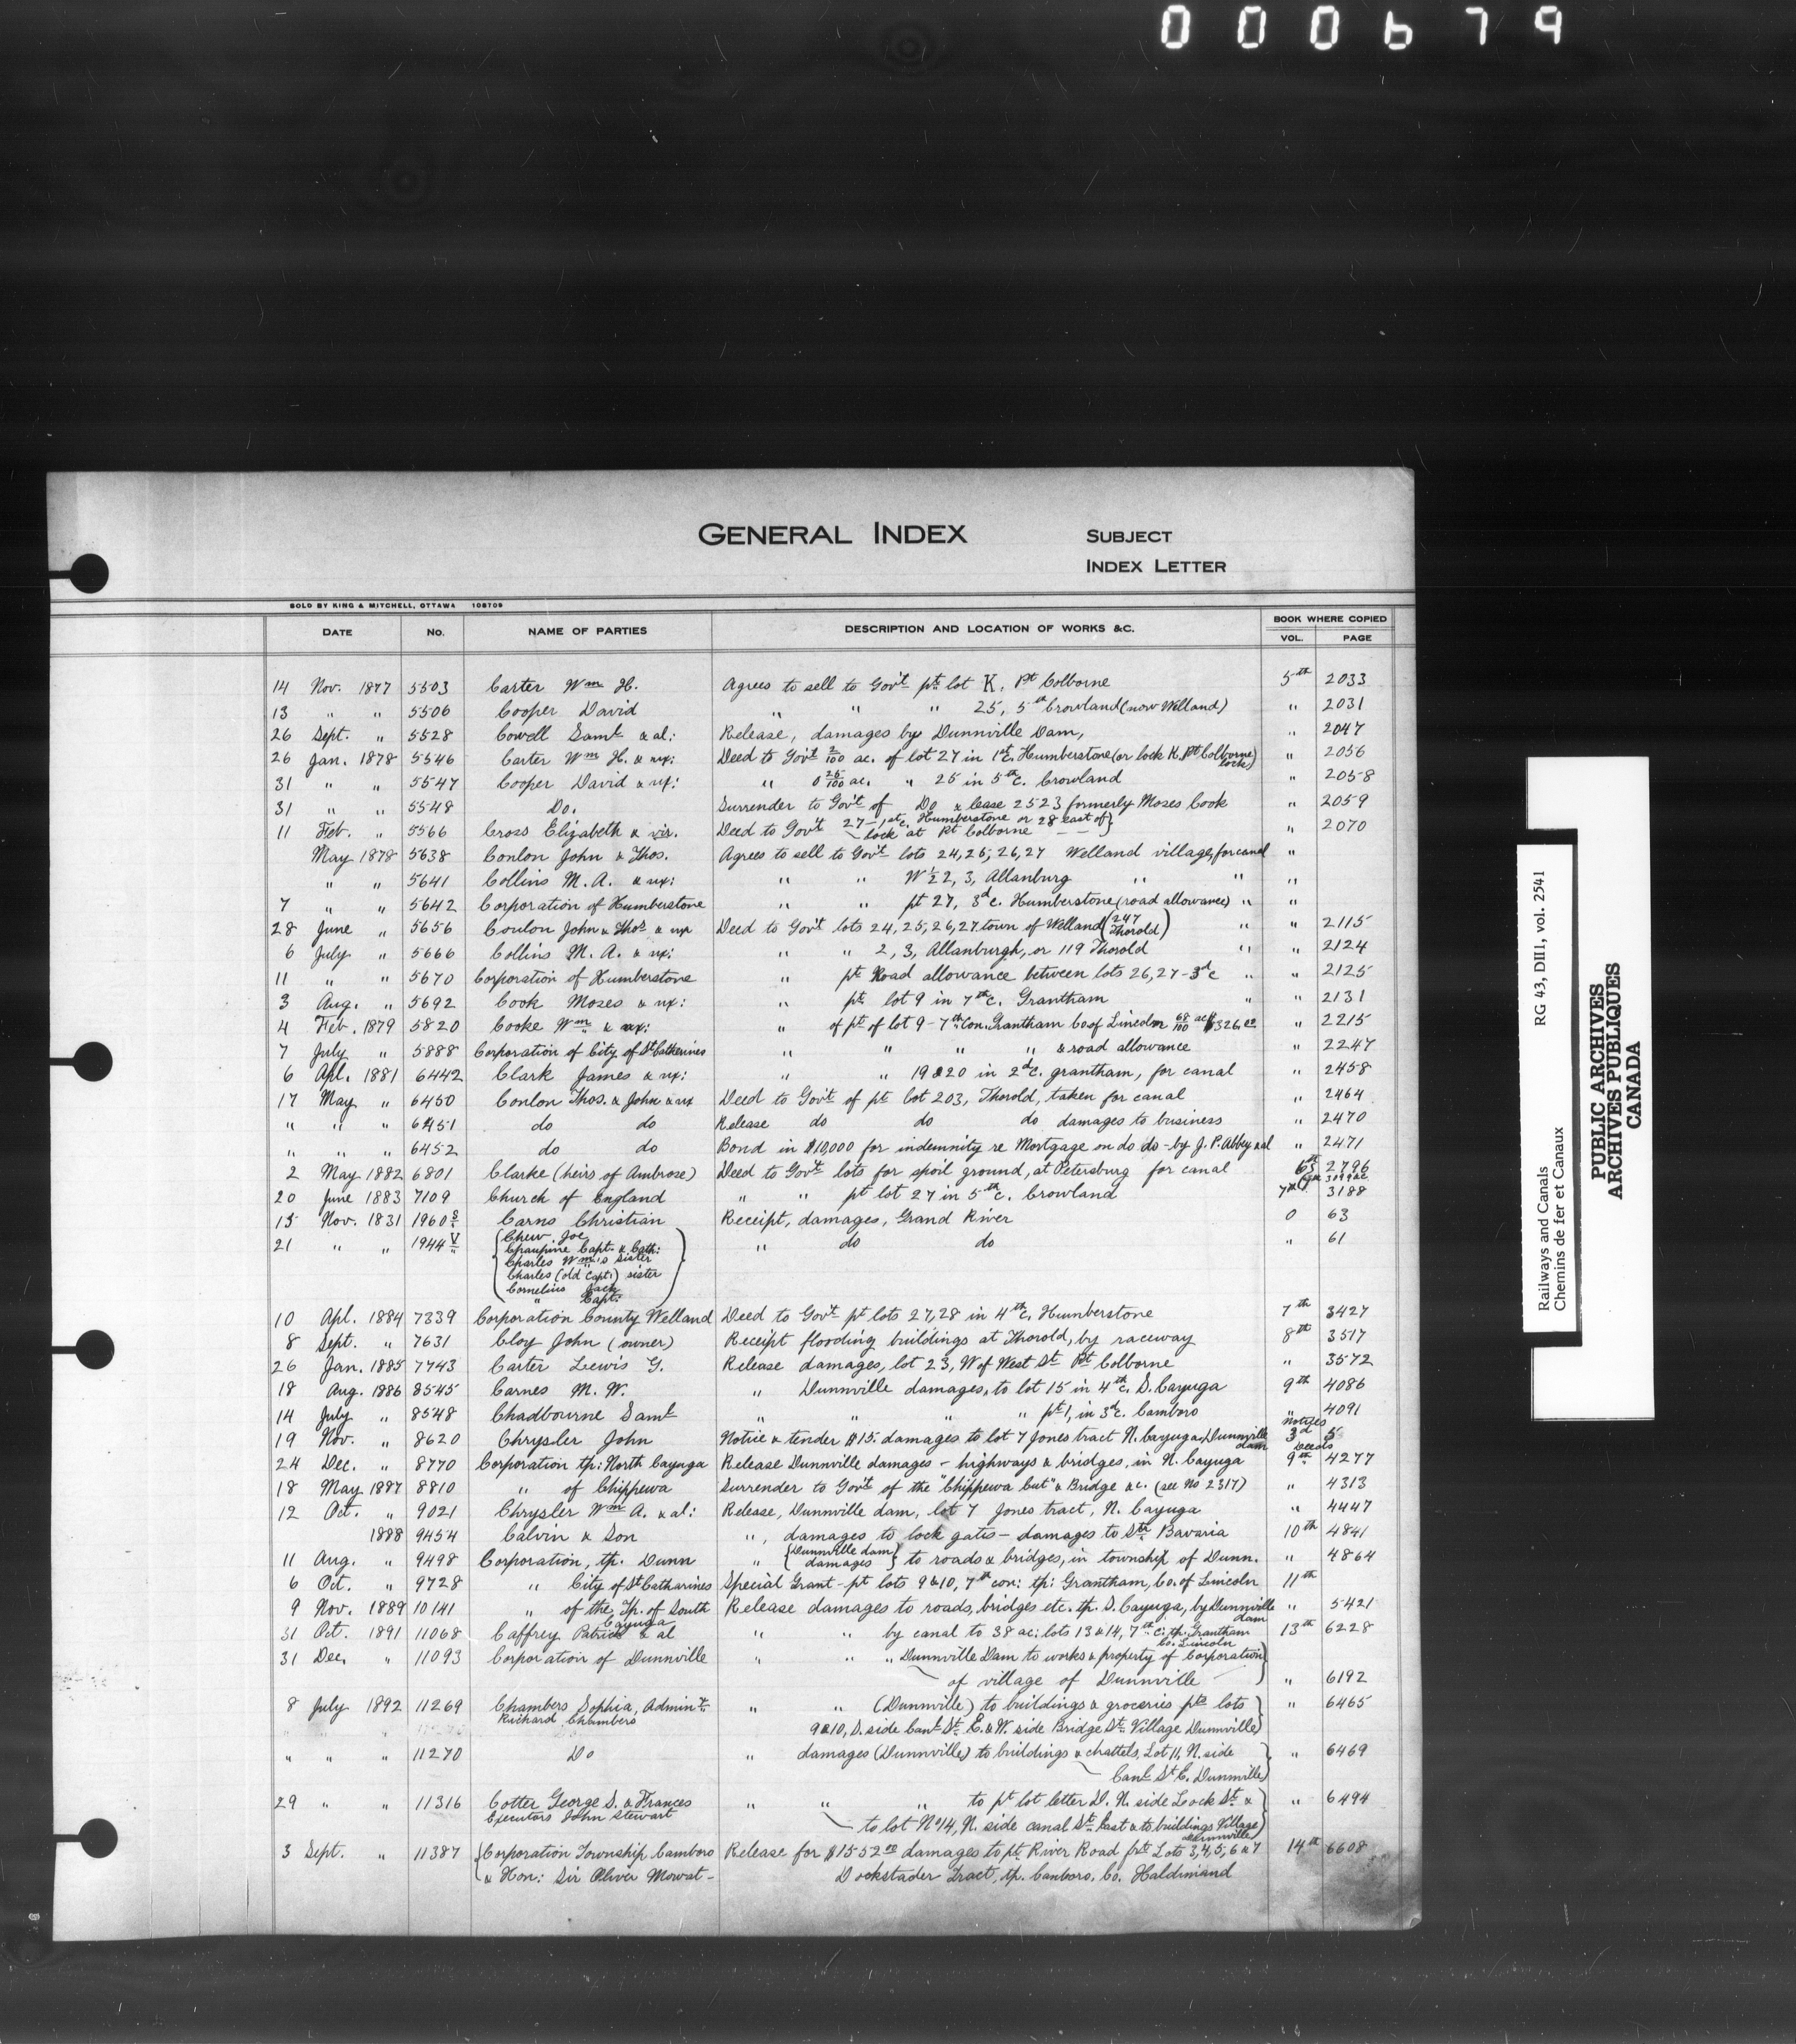 000679
GENERAL INDEX
SUBJECT
INDEX LETTER
SOLD BY KING & MITCHELL, OTTAWA 108709
DATE No. NAME OF PARTIES DESCRIPTION AND LOCATION OF WORKS &C. BOOK WHERE COPIED
VOL. PAGE
14 Nov. 1877 5503 Carter Wm H. Agrees to sell to Gov't pt lot K. Pt Colborne 5th 2033
13 " " 5506 Cooper David " " " 25, 5th Crowland (now Welland) " 2031
26 Sept. " 5528 Cowell Saml & al: Release, damages by Dunnville Dam, " 2047
26 Jan. 1878 5546 Carter Wm H. & ux: Deed to Gov't 2/100 ac. of lot 27 in 1st c. Humberstone (or lock K. Pt Colborne lock) " 2056
31 " " 5547 Cooper David & ux: " 0 25/100 ac. " 25 in 5th c. Crowland " 2058
31 " " 5548 Do. Surrender to Gov't of Do & lease 2523 formerly Moses Cook " 2059
11 Feb. " 5566 Cross Elizabeth & vir. Deed to Gov't 27 - 1st c. Humberstone or 28 east of lock at Pt Colborne " 2070
May 1878 5638 Conlon John & Thos. Agrees to sell to Gov't lots 24, 25, 26, 27 Welland village, for canal "
" " 5641 Collins M. A. & ux: " " W 1/2 2, 3, Allanburg " " "
7 " " 5642 Corporation of Humberstone " " pt 27, 3d c. Humberstone (road allowance) " "
28 June " 5656 Conlon John & Thos & ux Deed to Gov't lots 24, 25, 26, 27 town of Welland (247 Thorold) " " 2115
6 July " 5666 Collins M. A. & ux: " " 2, 3, Allanburgh, or 119 Thorold " " 2124
11 " " 5670 Corporation of Humberstone " pt Road allowance between lots 26, 27 - 3d c " " 2125
3 Aug. " 5692 Cook Moses & ux: " pt lot 9 in 7th c. Grantham " " 2131
4 Feb. 1879 5820 Cooke Wm & ux: " of pt of lot 9 - 7th Con. Grantham Co of Lincoln 68/100 ac $326.00 " 2215
7 July " 5888 Corporation of City of St Catherines " " " " & road allowance " 2247
6 Apl. 1881 6442 Clark James & ux: " " 19 & 20 in 2d c. grantham, for canal " 2458
17 May " 6450 Conlon Thos. & John & ux Deed to Gov't of pt lot 203, Thorold, taken for canal " 2464
" " " 6451 do do Release do do do damages to business " 2470
" " " 6452 do do Bond in $10,000 for indemnity re Mortgage on do do - by J. P. Abbey & al " 2471
2 May 1882 6801 Clarke (heirs of Ambrose) Deed to Gov't lots for spoil ground, at Petersburg for canal 6th 2796
20 June 1883 7109 Church of England " " pt lot 27 in 5th c. Crowland 7th 3188
15 Nov. 1831 1960 S Carns Christian Receipt, damages, Grand River 0 63
21 " " 1944 V Chew Joe " do do " 61
Capt. & Cath:
Charles Wm's sister
Charles (old Capt.) sister
Cornelius Jack
" Capt:
10 Apl. 1884 7339 Corporation County Welland Deed to Gov't pt lots 27, 28 in 4th c. Humberstone 7th 3427
8 Sept. " 7631 Cloy John (owner) Receipt flooding buildings at Thorold, by raceway 8th 3517
26 Jan. 1885 7743 Carter Lewis G. Release damages, lot 23, W of West St Pt Colborne " 3572
18 Aug. 1886 8545 Carnes M. W. " Dunnville damages, to lot 15 in 4th c. S. Cayuga 9th 4086
14 July " 8548 Chadbourne Saml " " " " pt 1, in 3d c. Camboro " 4091
19 Nov. " 8620 Chrysler John Notice & tender $15. damages to lot 7 Jones tract N. Cayuga, Dunnville dam notices 3d 5
24 Dec. " 8770 Corporation tp: North Cayuga Release Dunnville damages - highways & bridges, in N. Cayuga Deeds 9th 4277
18 May 1887 8810 " of Chippewa Surrender to Gov't of the "Chippewa Cut" & Bridge &c. (see No 2317) " 4313
12 Oct. " 9021 Chrysler Wm A. & al: Release, Dunnville dam, lot 7 Jones tract, N. Cayuga " 4447
1888 9454 Calvin & Son ", damages to lock gates - damages to Str Bavaria 10th 4841
11 Aug. " 9498 Corporation, tp. Dunn " {Dunnville dam damages} to roads & bridges, in township of Dunn. " 4864
6 Oct. " 9728 " City of St Catharines Special Grant - pt lots 9 & 10, 7th con: tp: Grantham, Co. of Lincoln 11th
9 Nov. 1889 10141 " of the Tp. of South Cayuga Release damages to roads, bridges etc. tp. S. Cayuga, by Dunnville dam " 5421
31 Oct. 1891 11068 Caffrey Patrick & al " " by canal to 38 ac: lots 13 & 14, 7th c: tp. Grantham Co. Lincoln 13th 6228
31 Dec. " 11093 Corporation of Dunnville " " " Dunnville Dam to works & property of Corporation
of village of Dunnville " 6192
8 July 1892 11269 Chambers Sophia, Admin'x " " (Dunnville) to buildings & groceries pts lots " 6465
Richard Chambers 9 & 10, S. side Canl St. E. & W. side Bridge St. Village Dunnville
" " " 11270 Do " damages (Dunnville) to buildings & chattels, Lot 11, N. side " 6469
Canl St E. Dunnville
29 " " 11316 Cotter George S. & Frances " " " to pt lot letter D. N. side Lock St & " 6494
Executors John Stewart to lot No 14, N. side canal St. East & to buildings Village Dunnville
3 Sept. " 11387 Corporation Township Camboro Release for $1552.00 damages to pt River Road frt Lots 3, 4, 5, 6 & 7 14th 6608
& Hon: Sir Oliver Mowat - Dockstader Tract, tp. Canboro, Co. Haldimand
Railways and Canals RG 43, DIII, vol. 2541
Chemins de fer et Canaux
PUBLIC ARCHIVES
ARCHIVES PUBLIQUES
CANADA